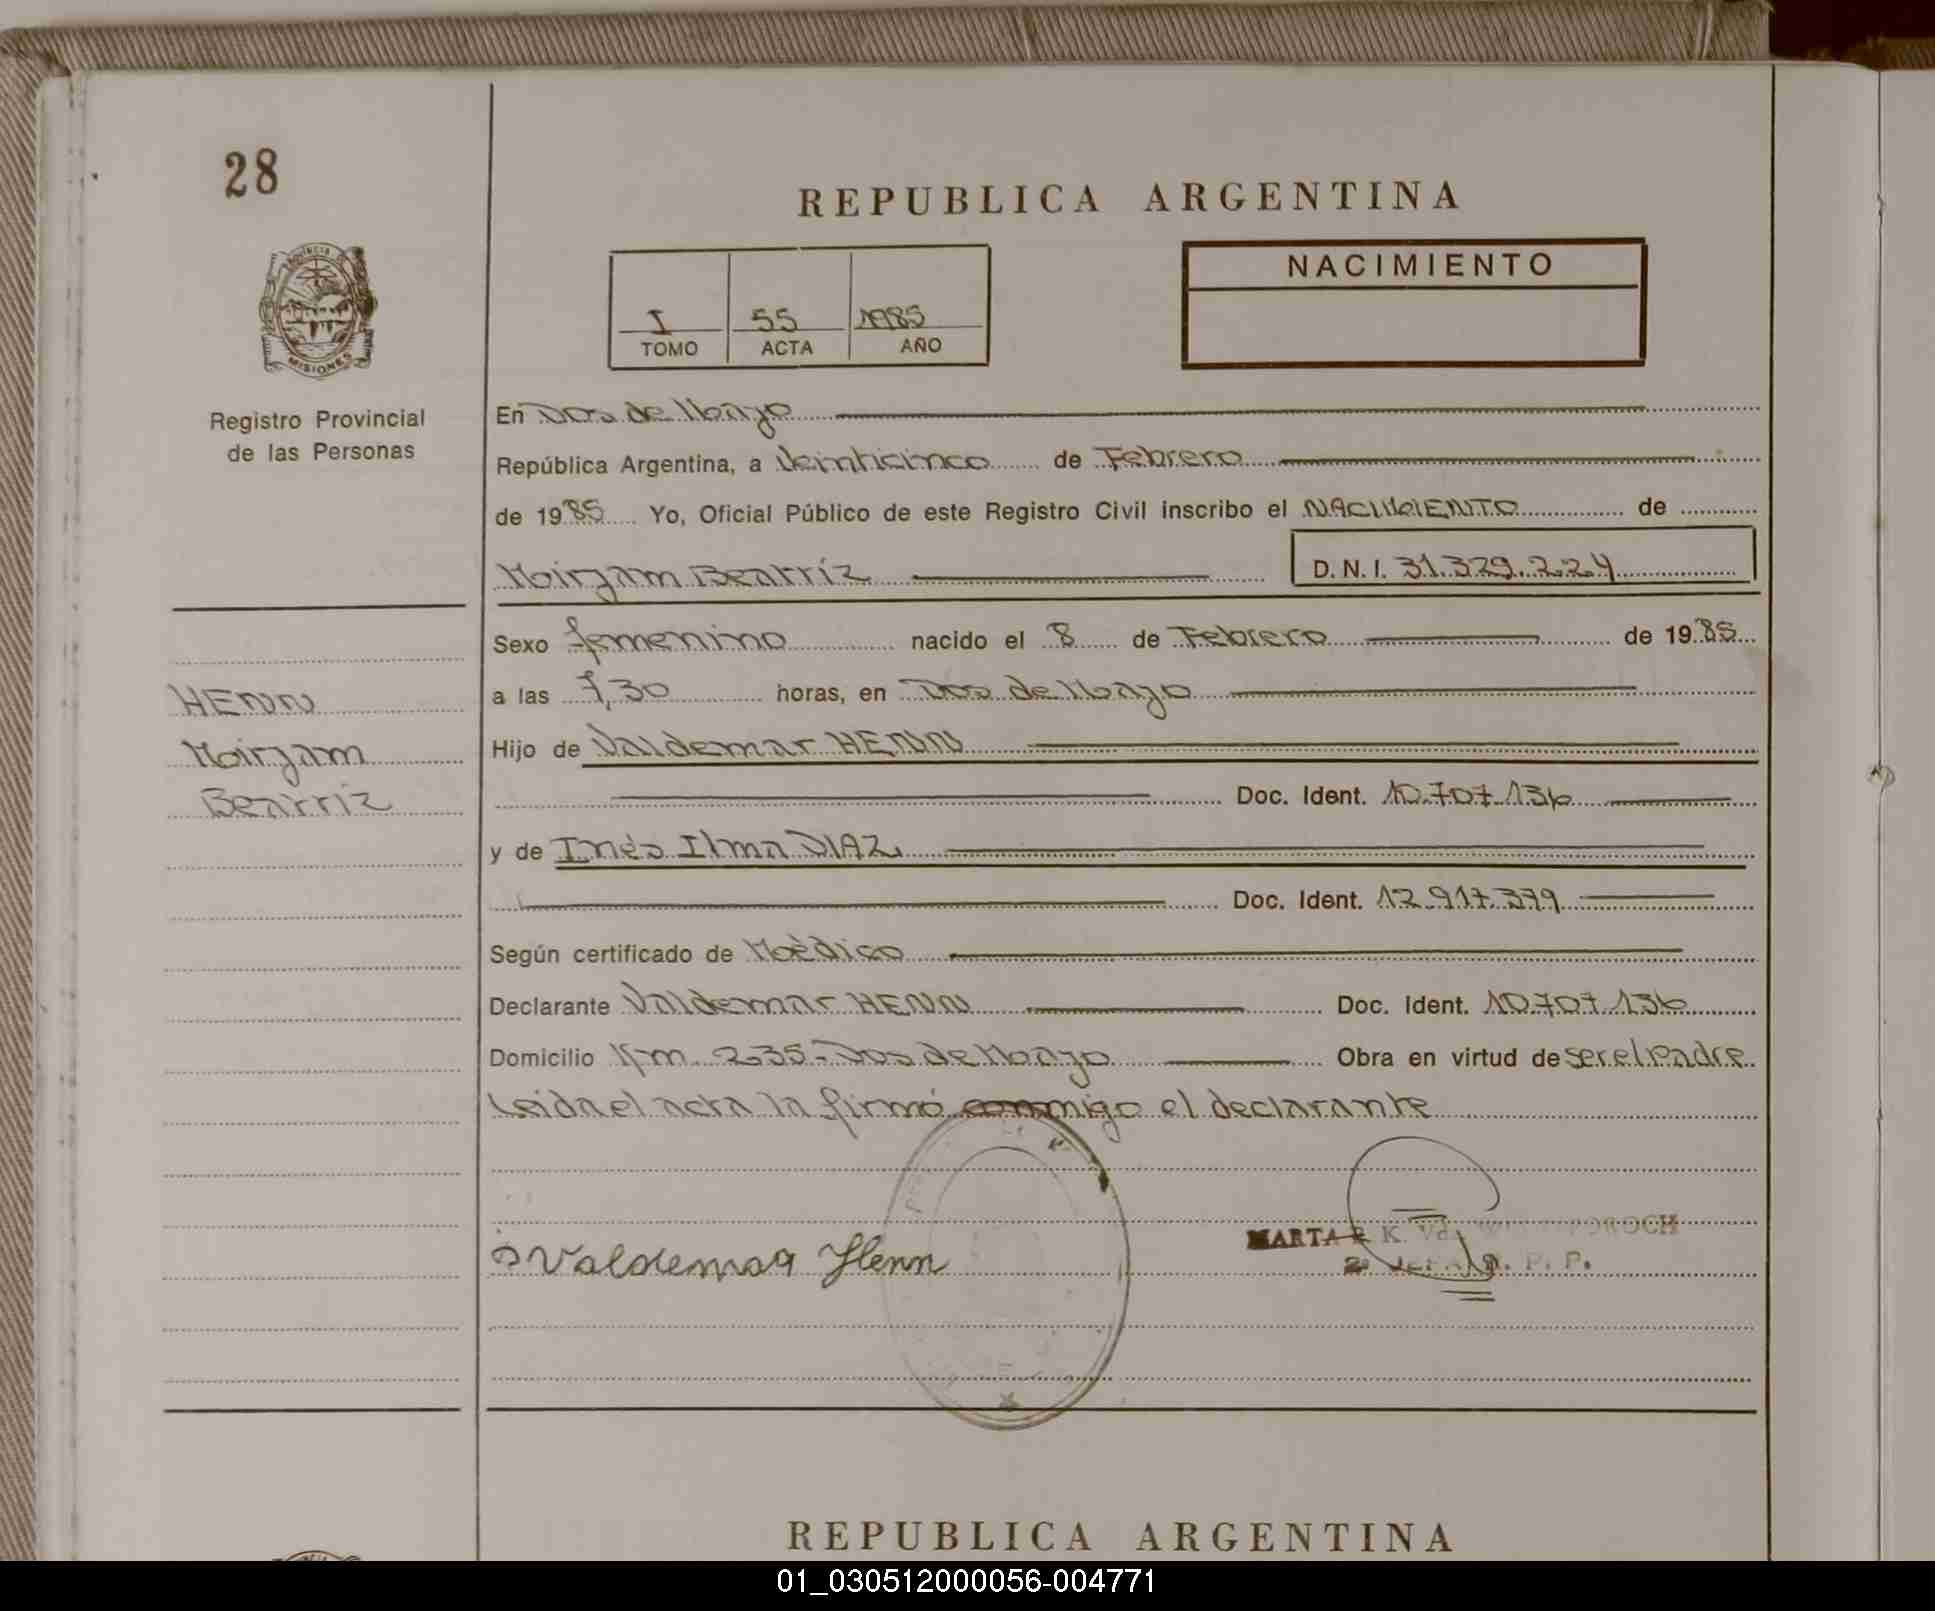 28
REPUBLICA ARGENTINA
PROVINCIA DE
MISIONES
NACIMIENTO
I 55 1985
TOMO ACTA AÑO
Registro Provincial
de las Personas
En Dos de Mayo
República Argentina, a Veinticinco de Febrero
de 1985 Yo, Oficial Público de este Registro Civil inscribo el NACIMIENTO de
Mirjam Beatríz D. N. I. 31.329.224
Sexo femenino nacido el 8 de Febrero de 1985
a las 7,30 horas, en Dos de Mayo
HENN
Mirjam
Beatriz
Hijo de Valdemar HENN
Doc. Ident. 10.707.136
y de Inés Ilma DIAZ
Doc. Ident. 12.917.379
Según certificado de Médico
Declarante Valdemar HENN Doc. Ident. 10.707.136
Domicilio Km 235-Dos de Mayo Obra en virtud de ser el Padre
Leida el acta la firmó conmigo el declarante
Valdemar Henn
MARTA K. Vda
R. P. P.
REPUBLICA ARGENTINA
01_030512000056-004771